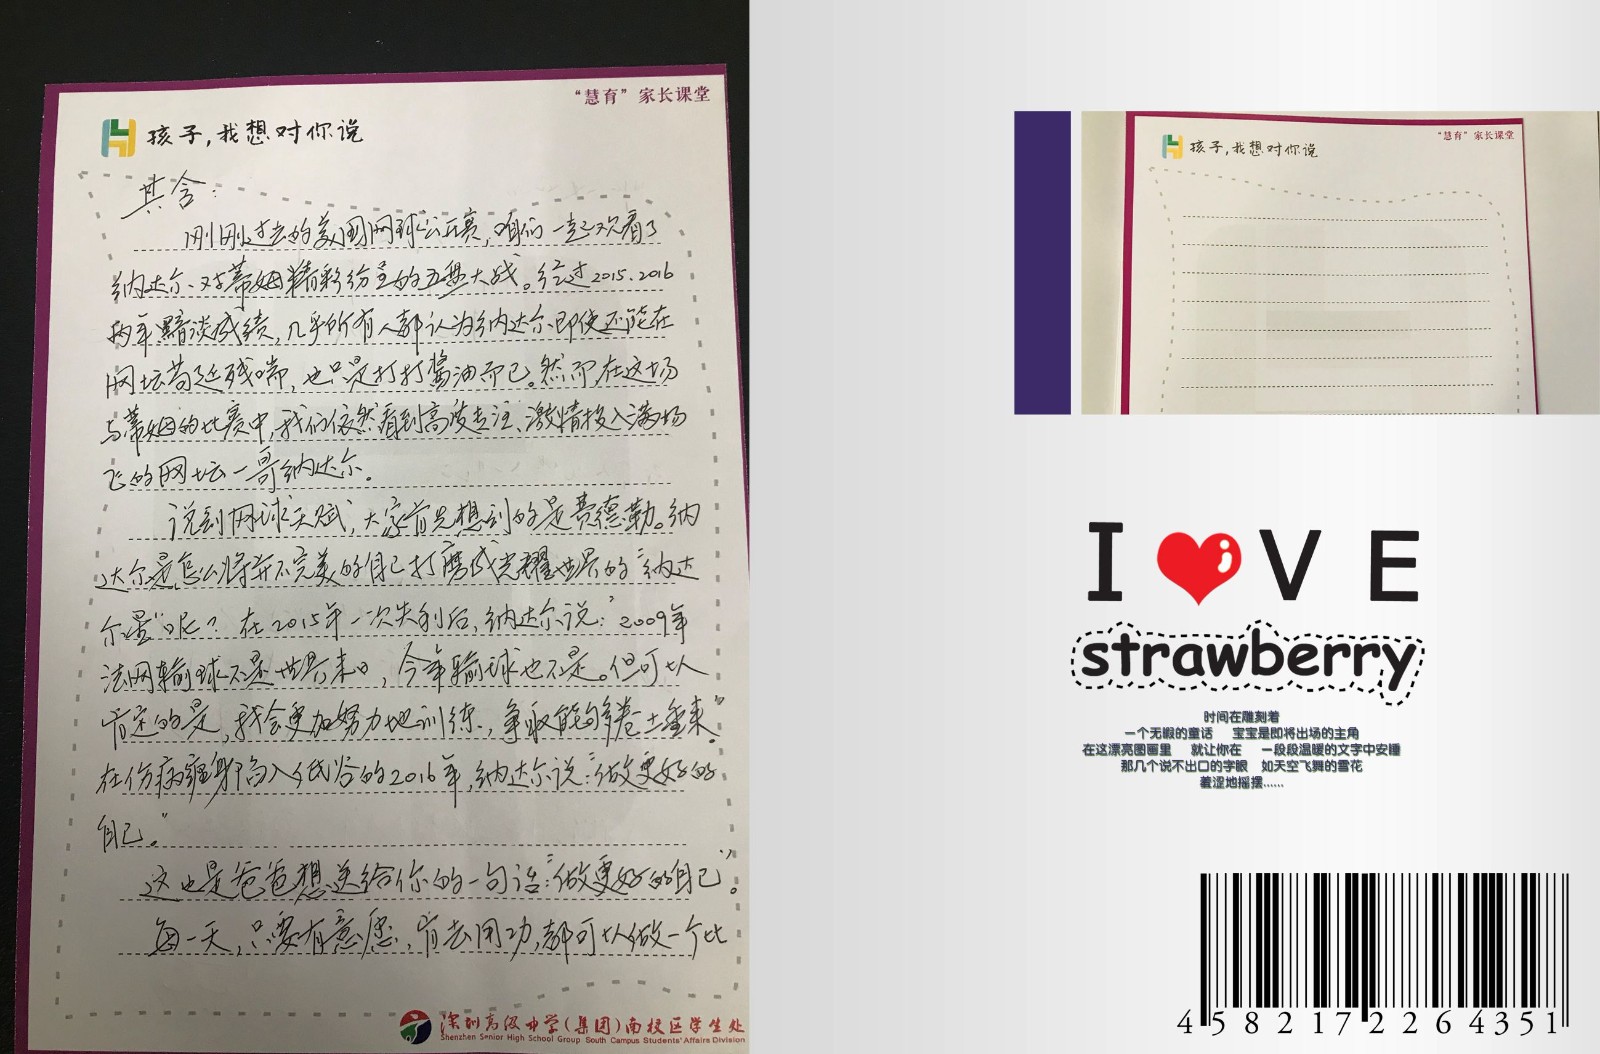 “慧育”家长课堂
孩子,我想对你说
其含:
刚刚过去的美国网球公开赛,咱们一起观看了
纳达尔对蒂姆精彩纷呈的五盘大战。经过2015、2016
两年黯淡成绩,几乎所有人都认为纳达尔即使还能在
网坛苟延残喘,也只是打打酱油而已。然而,在这场
与蒂姆的比赛中,我们依然看到高度专注、激情投入、满场
飞的网坛一哥纳达尔。
说到网球天赋,大家首先想到的是费德勒。纳
达尔是怎么将并不完美的自己打磨成光耀世界的“纳达
尔星”呢?在2015年一次失利后,纳达尔说:“2009年
法网输球不是世界末日,今年输球也不是。但可以
肯定的是,我会更加努力地训练,争取能够卷土重来。”
在伤病缠身陷入低谷的2016年,纳达尔说:“做更好的
自己。”
这也是爸爸想送给你的一句话:“做更好的自己”。
每一天,只要有意愿,肯去用功,都可以做一个比
深圳高级中学(集团)南校区学生处
Shenzhen Senior High School Group South Campus Students' Affairs Division
“慧育”家长课堂
孩子,我想对你说
I VE
strawberry
时间在雕刻着
一个无暇的童话 宝宝是即将出场的主角
在这漂亮图画里 就让你在 一段段温暖的文字中安睡
那几个说不出口的字眼 如天空飞舞的雪花
羞涩地摇摆......
4 582172 264351